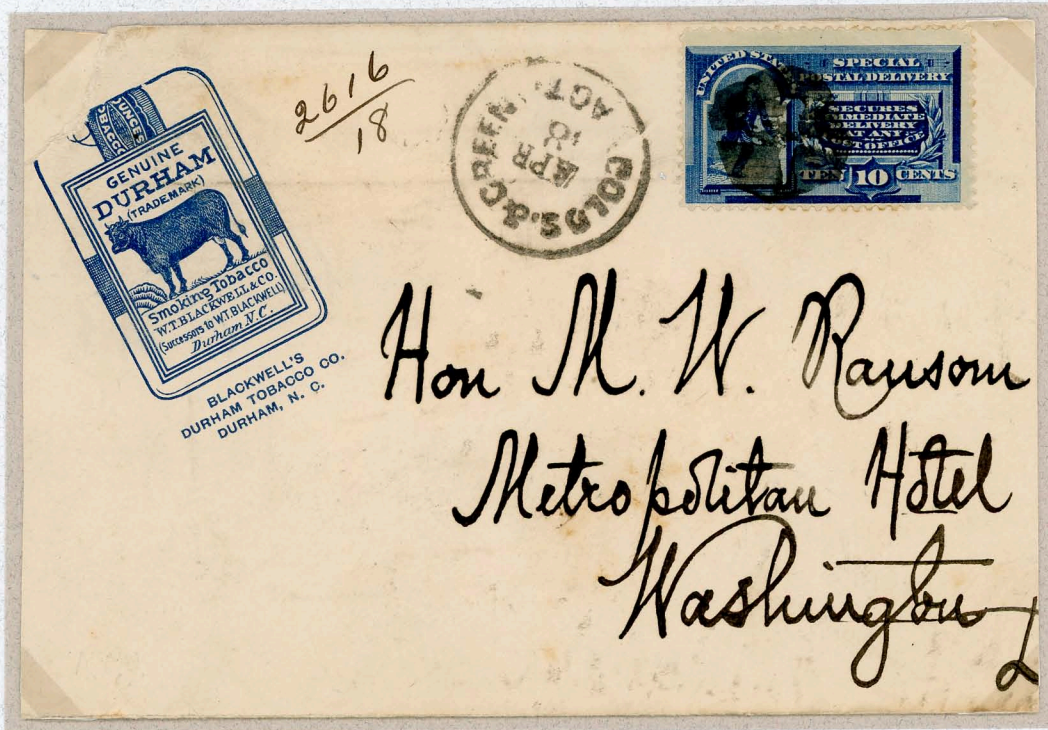 OUNCES
TOBACCO
GENUINE
DURHAM
(TRADEMARK)
Smoking Tobacco
W.T. BLACKWELL & CO.
(Successors to W.T. BLACKWELL)
Durham N.C.
BLACKWELL'S
DURHAM TOBACCO CO.
DURHAM, N. C.
2616
18
GOLDS. & GREEN AGT.
APR
18
UNITED STATES
SPECIAL
POSTAL DELIVERY
SECURES
IMMEDIATE
DELIVERY
AT ANY
POST OFFICE
TEN 10 CENTS
Hon M. W. Ransom
Metropolitan Hotel
Washington